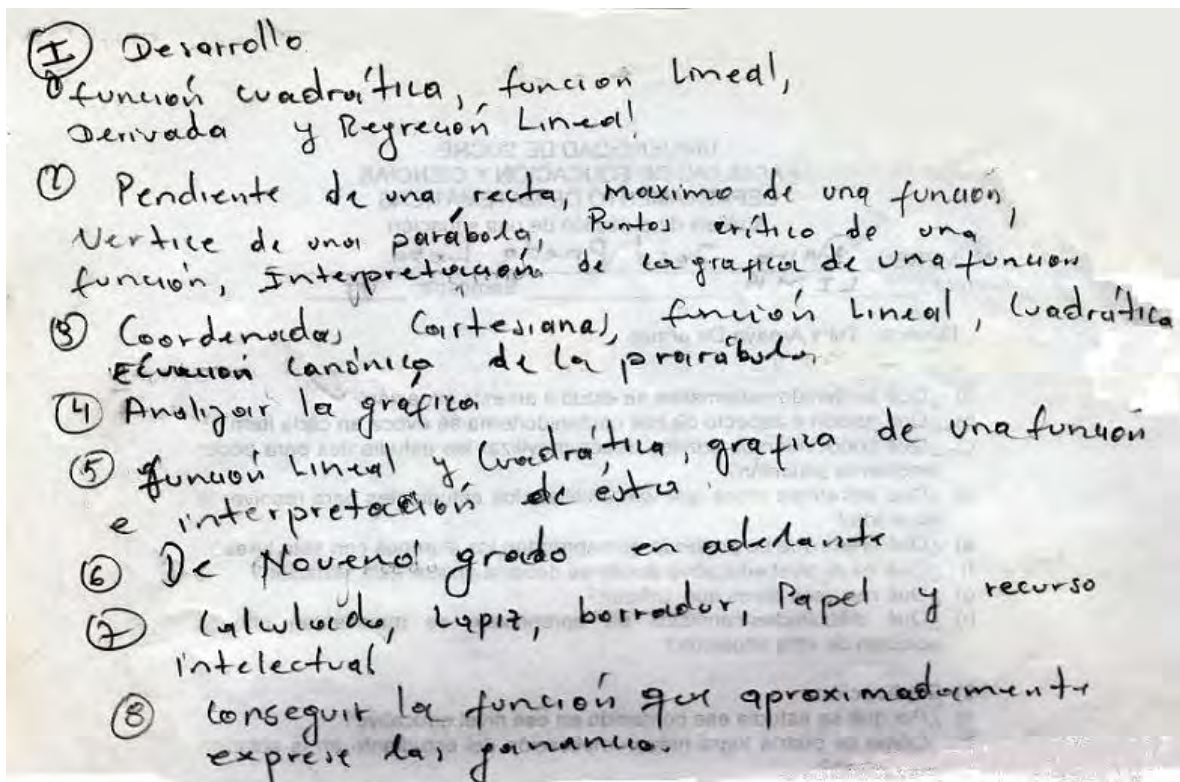 I Desarrollo
① función cuadrática, función Lineal,
Derivada y Regreción Lineal
② Pendiente de una recta, maximo de una función,
Vertice de una parábola, Puntos crítico de una
función, Interpretación de la grafica de una función
③ Coordenadas Cartesianas, función Lineal, Cuadrática
Ecuación Canónica de la prarábola.
④ Analizar la gráfica
⑤ función Lineal y Cuadrática, grafica de una función
e interpretación de ésta.
⑥ De Noveno grado en adelante
⑦ Calculadora, Lapiz, borrador, Papel y recurso
intelectual
⑧ Conseguir la función que aproximadamente
exprese las ganancias.